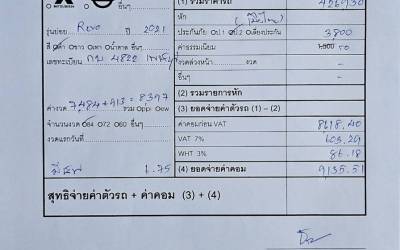 (1) รวมราคารถ 426930
อื่นๆ
หัก
รุ่นย่อย Revo ปี 2021
ประกันภัย ป1 ป2 เลือกประกัน 3800
สี ดำ ขาว เทา น้ำตาล อื่นๆ
ค่าธรรมเนียม 50
เลขทะเบียน กบ 4822
งวดล่วงหน้า งวด -
อื่นๆ -
(2) รวมรายการหัก
ค่างวด 7484+913=8397 รวม Oppi Oew
(3) ยอดจ่ายค่าตัวรถ (1) – (2)
จำนวนงวด 84 72 60 อื่นๆ
ค่าคอมก่อน VAT 8618.40
งวดแรกวันที่
VAT 7% 603.29
WHT 3% 86.18
1.75 (4) ยอดจ่ายค่าคอม 9135.51
สุทธิจ่ายค่าตัวรถ + ค่าคอม (3) + (4)